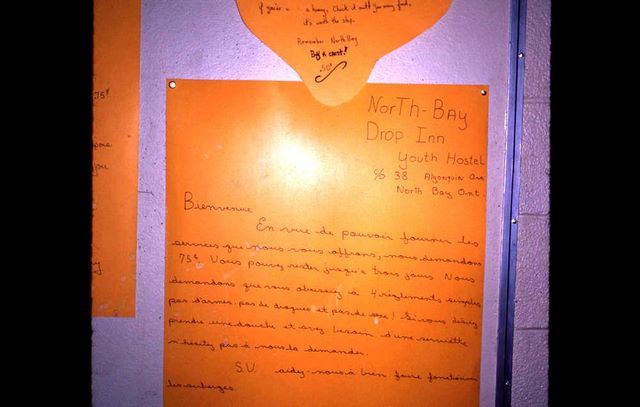 If you're a hungry, check it out! You may find,
it's worth the stop.
Remember North Bay
Buy a card!
.50¢
75¢
you
North-Bay
Drop Inn
Youth Hostel
% 38 Algonquin Ave
North Bay Ont.
Bienvenue
En vue de pouvoir fournir les
services que nous vous offrons, nous demandons
75¢. Vous pouvez rester jusqu'à trois jours Nous
demandons que vous obéissiez à 4 règlements simples
pas d'armes, pas de drogues et pas de sexe! Si vous désirez
prendre une douche et avez besoin d'une serviette
n'hésitez pas à nous la demander.
S.V. aidez-nous à bien faire fonctionner
les auberges.